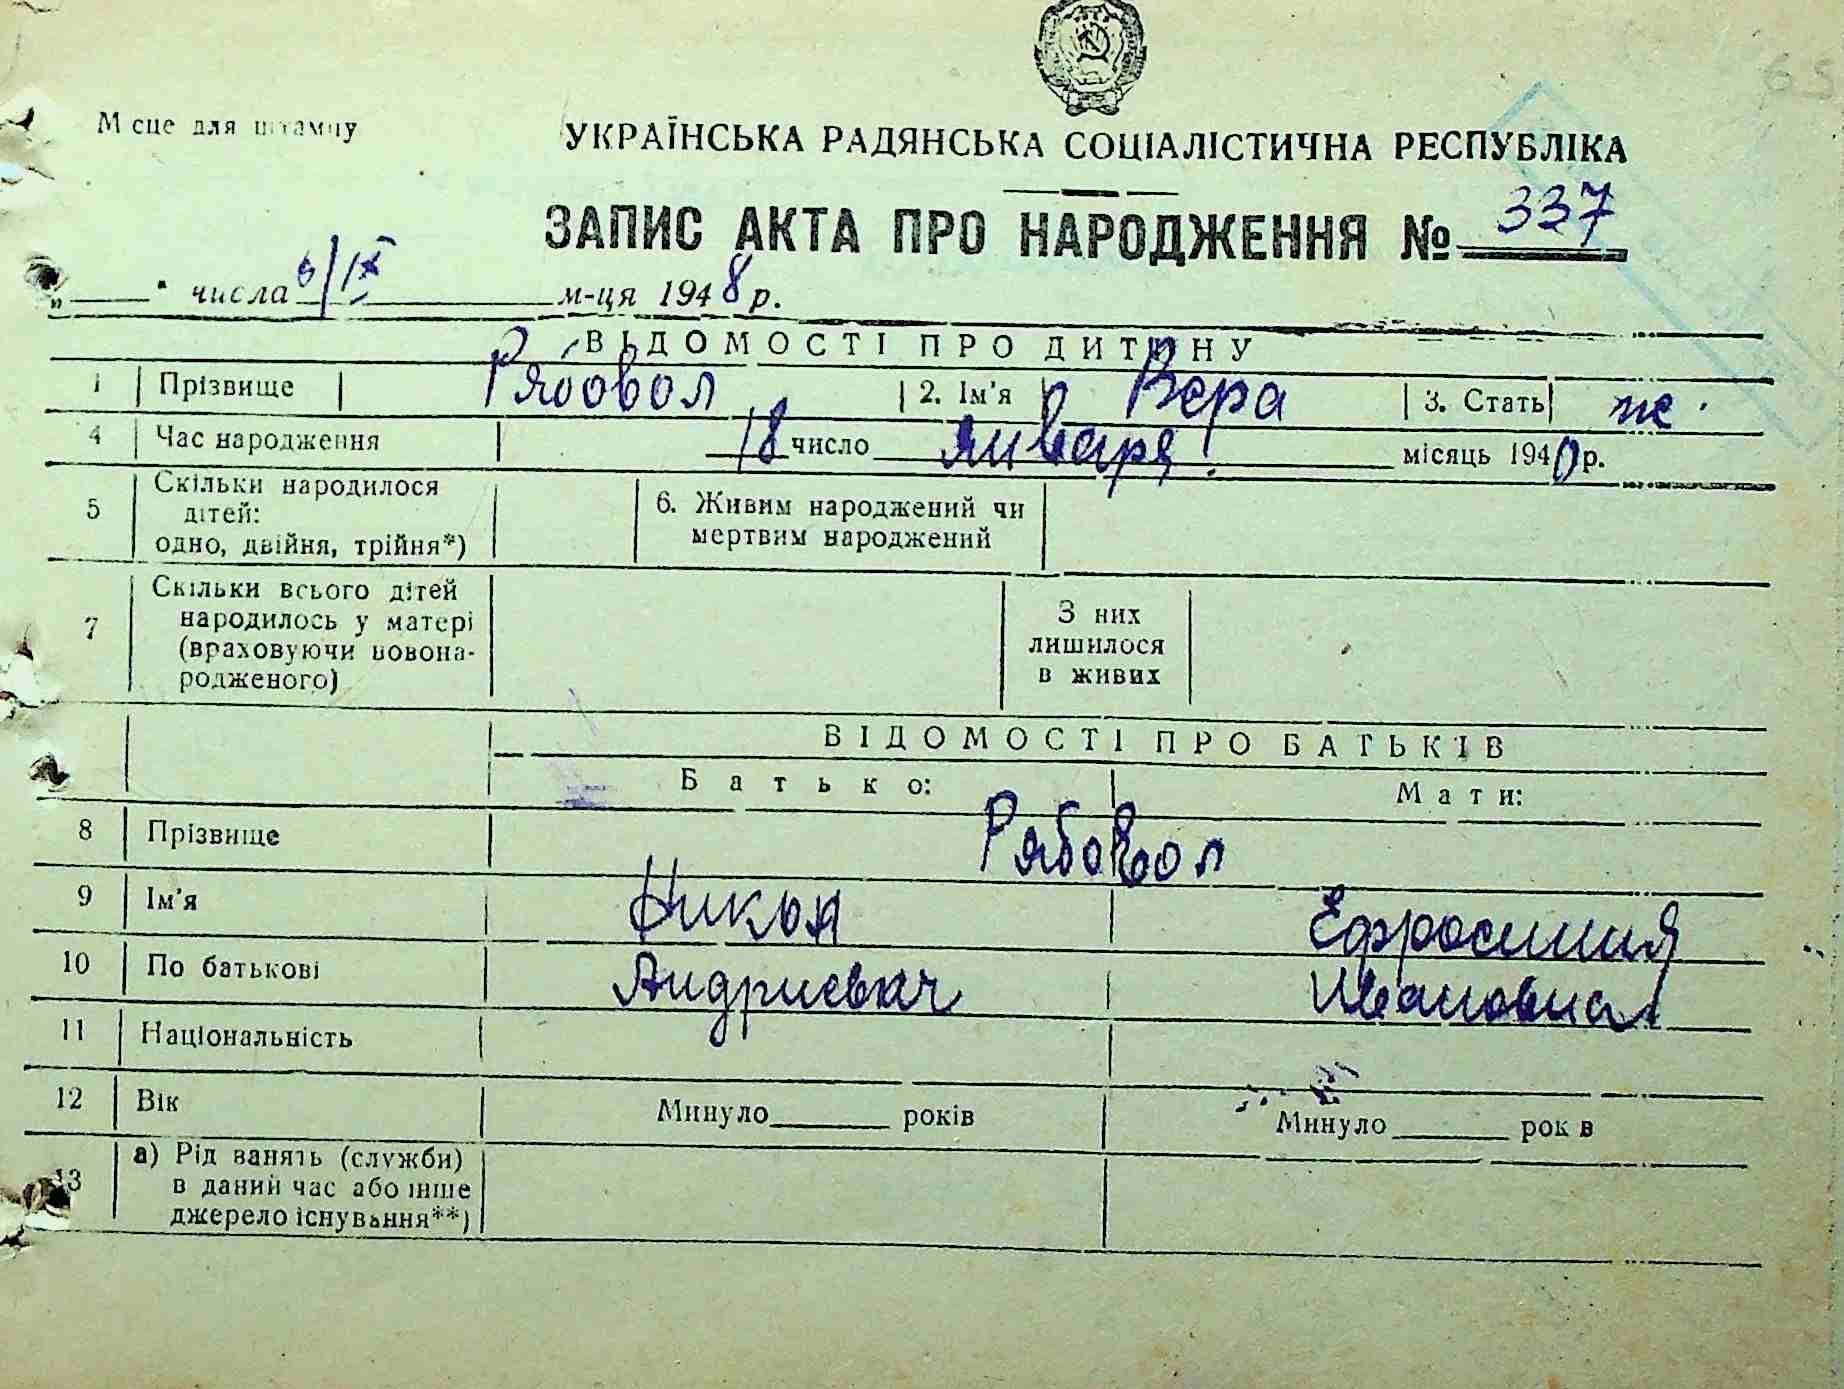 65
Місце для штампу
УКРАЇНСЬКА РАДЯНСЬКА СОЦІАЛІСТИЧНА РЕСПУБЛІКА
ЗАПИС АКТА ПРО НАРОДЖЕННЯ № 337
„____" числа 6/IX м-ця 1948 р.
ВІДОМОСТІ ПРО ДИТИНУ
1 Прізвище Рябовол 2. Ім'я Вера 3. Стать ж.
4 Час народження 18 число января місяць 1940 р.
5 Скільки народилося дітей: одно, двійня, трійня*) 6. Живим народжений чи мертвим народжений
7 Скільки всього дітей народилось у матері (враховуючи новона-родженого) З них лишилося в живих
ВІДОМОСТІ ПРО БАТЬКІВ
Батько: Мати:
8 Прізвище Рябовол
9 Ім'я Никон Ефросиния
10 По батькові Андриевич Ивановна
11 Національність
12 Вік Минуло____ років Минуло____ рок в
13 а) Рід занять (служби) в даний час або інше джерело існування**)